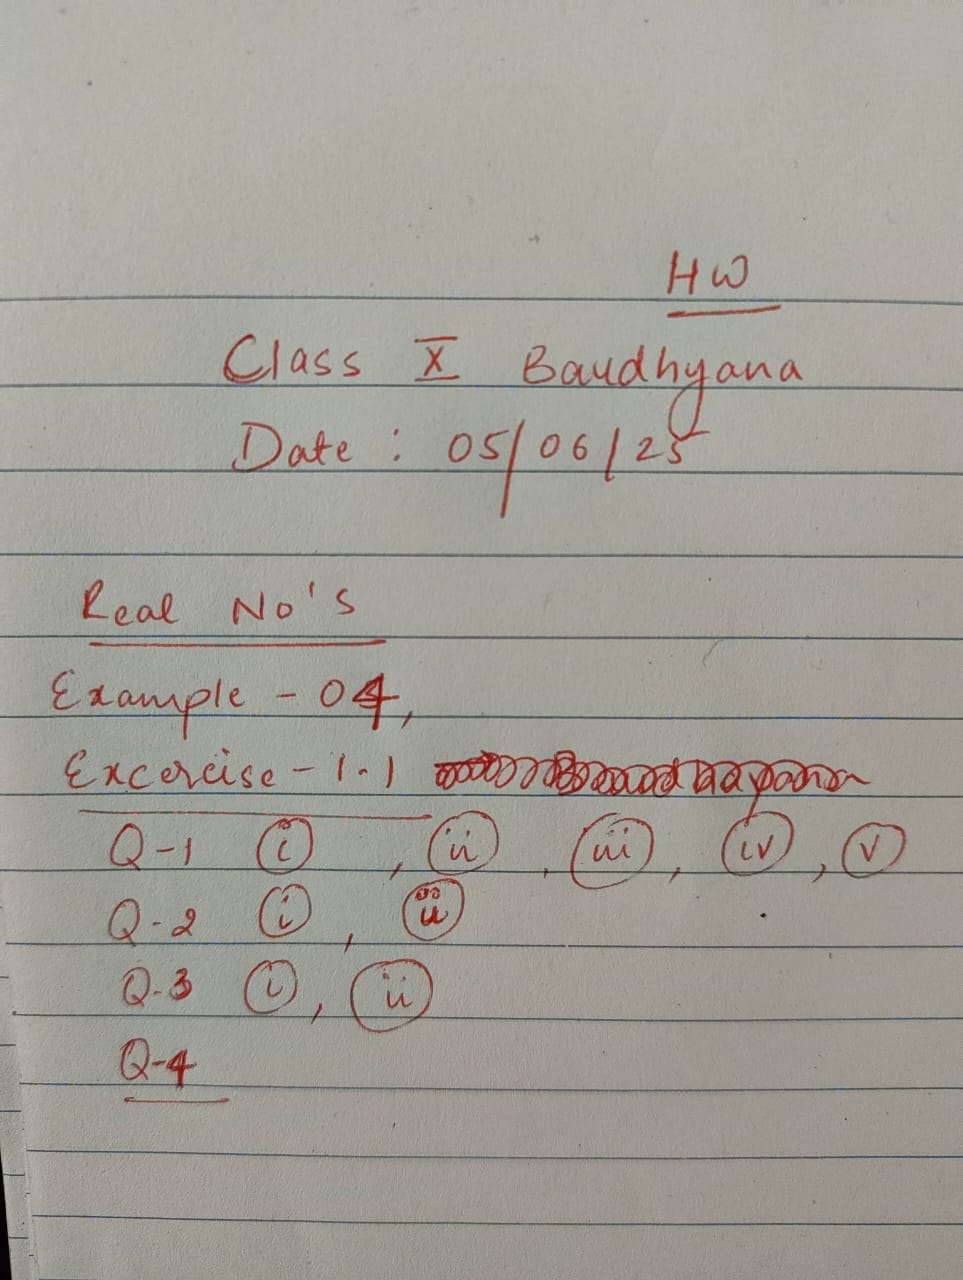 HW
Class X Baudhyana
Date : 05/06/25
Real No's
Example - 04,
Excercise - 1.1
Q-1 i , ii , iii , iv , v
Q-2 i , ii
Q-3 i , ii
Q-4